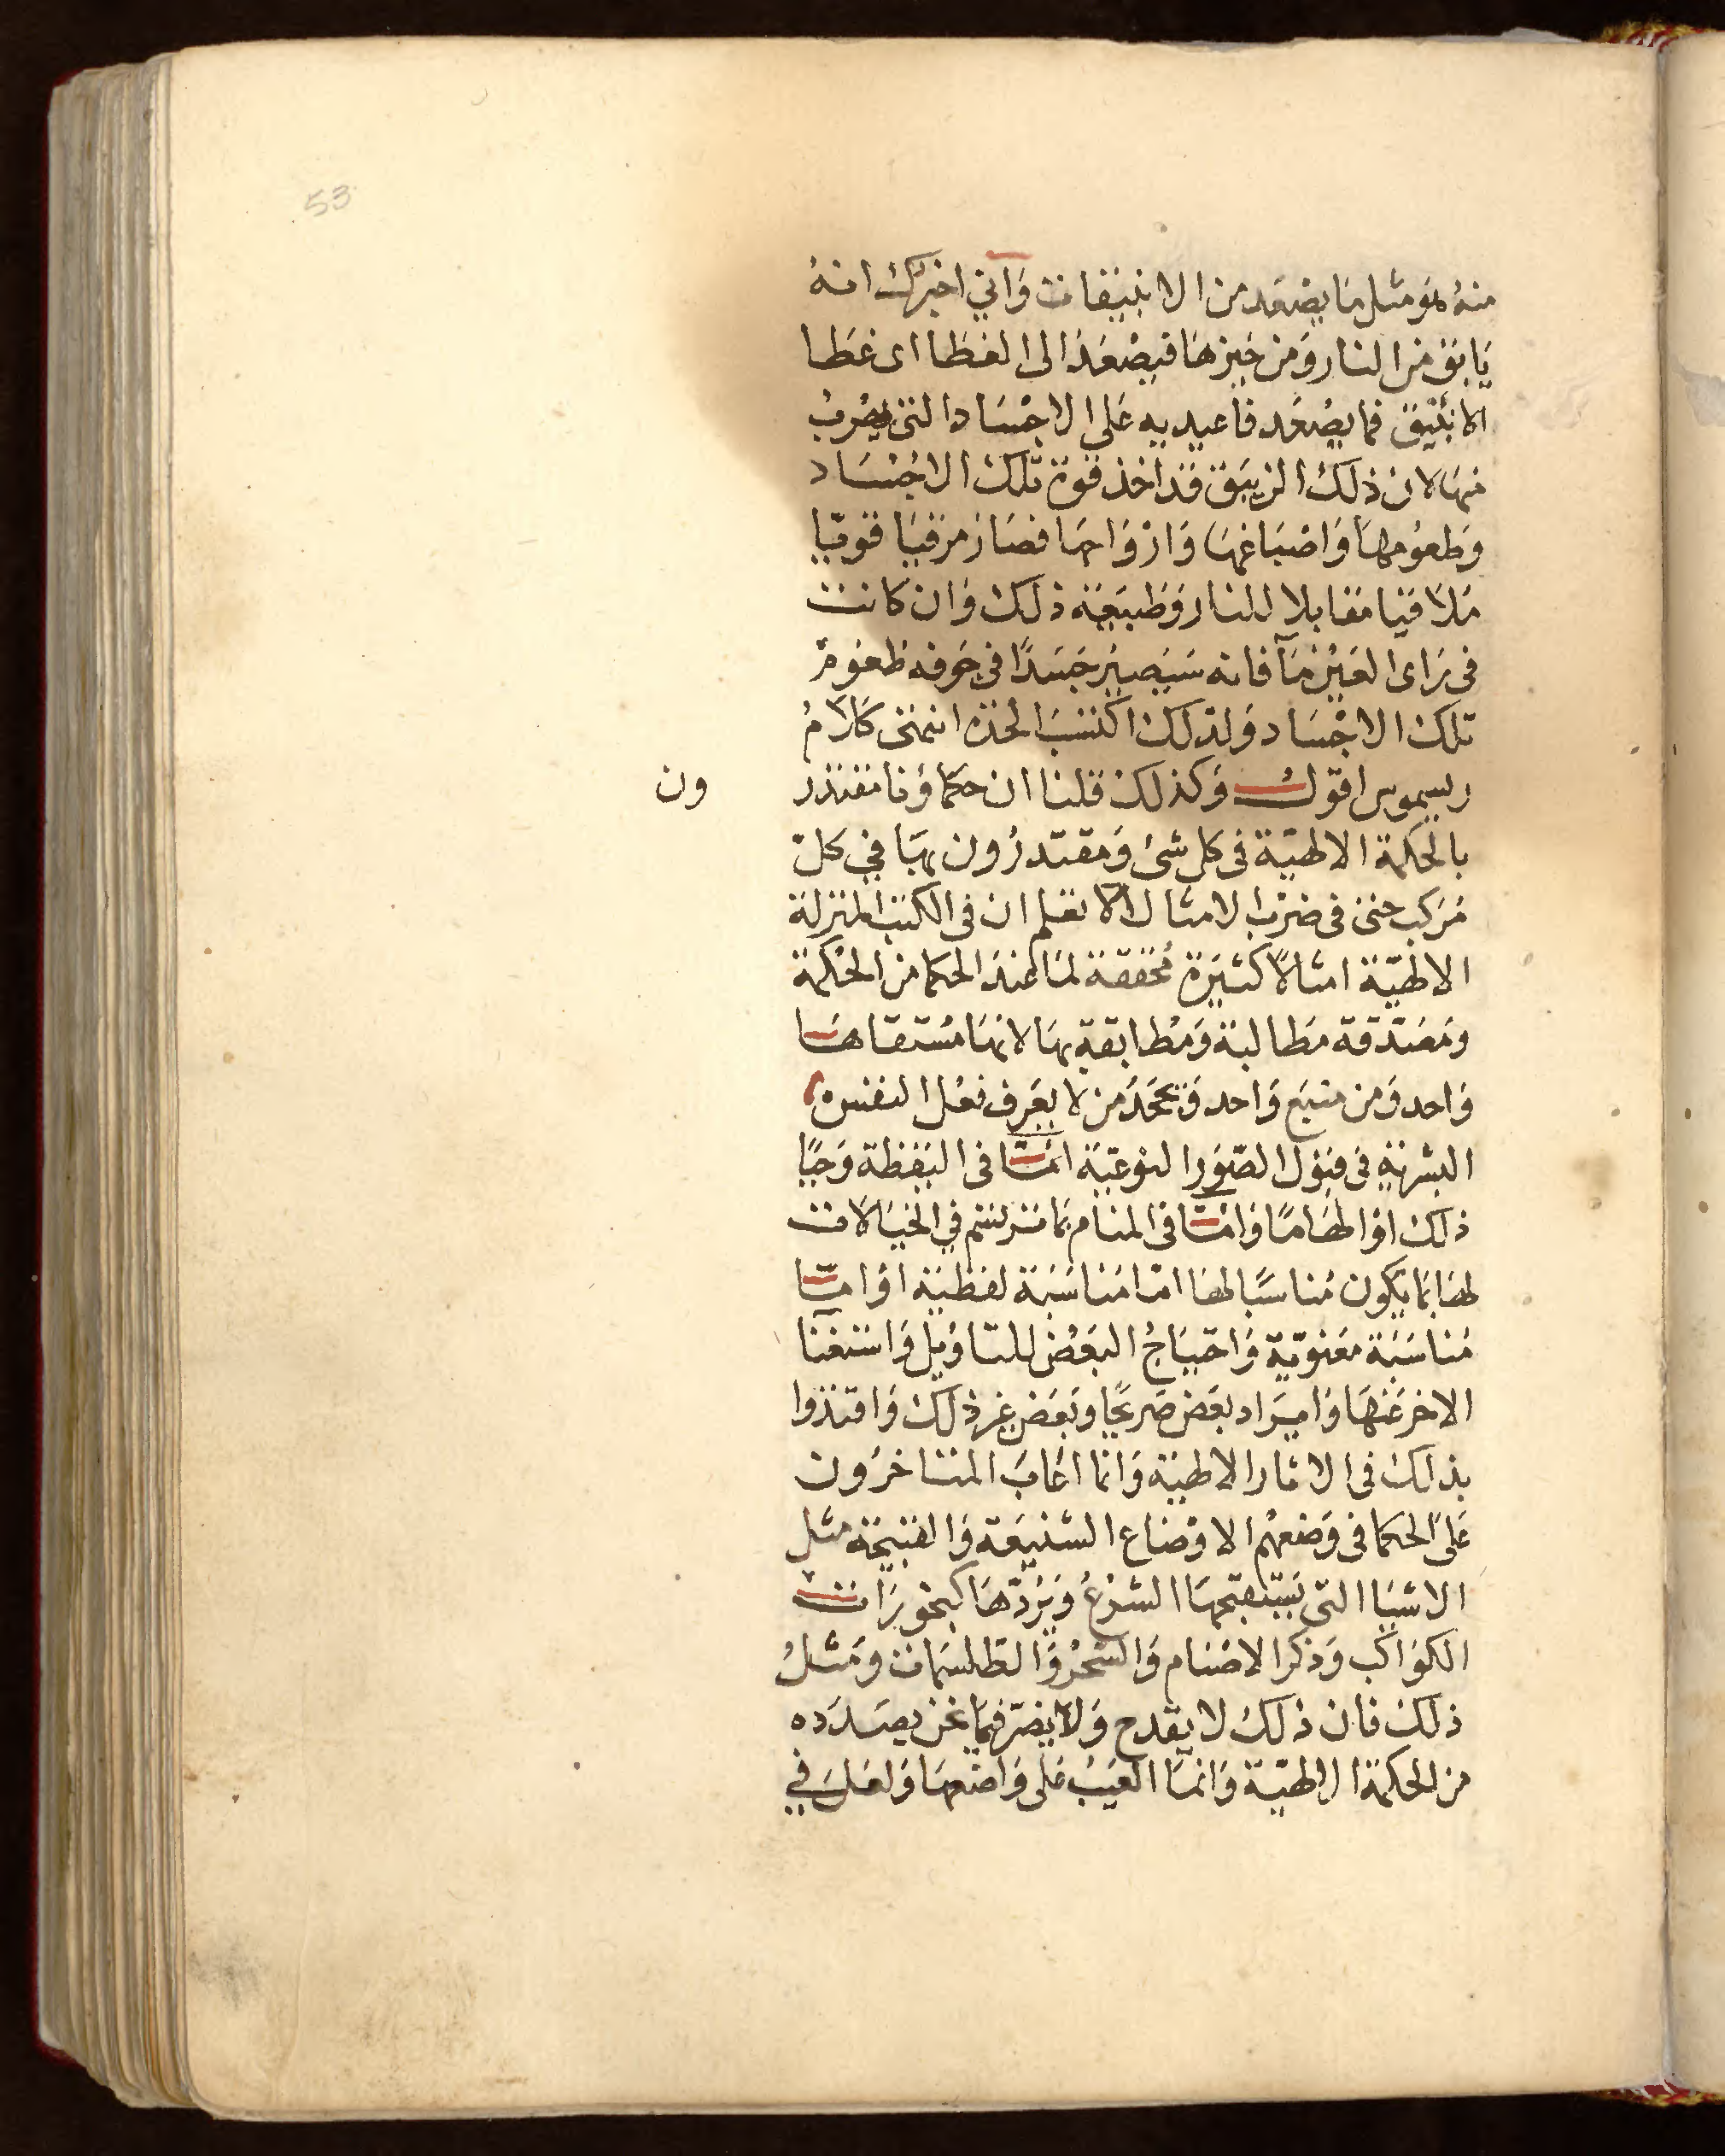 53
منه هو مثل ما يصعد من الانبيقات وَاني اخبرك انهُ
يَابق من النار وَمن خيزهَا فيصْعَد الى الغطا اى غَطا
الانبيق فما يصْعَد فاعيديه عَلى الاجْسَاد التى يضربُ
منهَا لان ذلك الزيبَق قد اخذ قوة تلك الاجْسَاد
وَطعُومهَا وَاصْبَاغهَا وَارْوَاحهَا فصَار مرقيَا قويّا
مُلاقيا مقابلا للنار وَطبيعَة ذلك وَان كانت
فى رَاى العَيْن مَآ فانه سَيَصير جَسَدًا فى جَوفه طعُومْ
تلك الاجْسَاد وَلذلك اكتسبَ لحذه انتهَى كلَامُ
ريسموس اقول وَكذلك قلنا ان حكماؤنا مقتدر
ون
بالحكمة الالهيّة فى كل شئ وَمقتدرُون بهَا فى كلّ
مُرَكب حتى فى ضرْب الامثال الا تعلم ان فى الكتب المنزلة
الالهيّة امثالًا كثيرَة مُحققة لمَا عندَ الحكما من الحْكمة
وَمصَدّقة مطالبة وَمُطابقة بهَا لانهَا مُستقاهَا
وَاحد وَمن منبَع وَاحد وَيجْحَدُ من لا يعَرف فعْل النفس
البشرية فى قبول الصّوَر النوعيّة امَّا فى اليَقظة وَحيًا
ذلك اوْ الهَامًا وَامَّا فى المنام بمَا ترتسم في الخيَالَات
لهَا بمَا يَكون مُناسبًا لهَا امّا مُناسَبَة لفظيَة اوْ امّا
مُناسَبَة معَنويّة وَاحْتيَاجُ البَعْض للتاوُيل وَاستغنا
الاخر عَنهَا وَايرَاد بعَض صَريحًا وَبعَض غير ذلك وَاقتدوا
بذلك فى الاثار الالهيَة وَانما اعَابَ المتَاخرُون
عَلى الحكما فى وَضعهْم الاوْضاع الشنيعَة وَالقبيحَة مثل
الاشيَا التى يَسْتقبحهَا الشرْعُ وَيَرُدّهَا كبخورَات
الكوَاكب وَذكر الاصْنام وَالسّحْر وَالطلسمَات وَمثلُ
ذلك فان ذلك لا يقدح وَلا يضرّ فيمَا نحن بصَدَده
من الحكمة الالهيّة وَانمَا العَيَبُ عَلى وَاضعهَا وَلعَل في